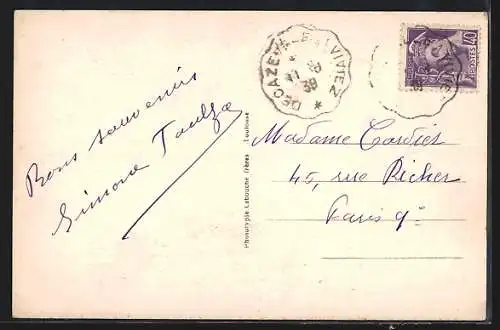 Bons souvenirs
Simone Toulze
Phototypie Labouche Frères Toulouse
DECAZEVILLE A VIVIEZ
38
40
POSTES
Madame Cordier
45, rue Richer
Paris 9e